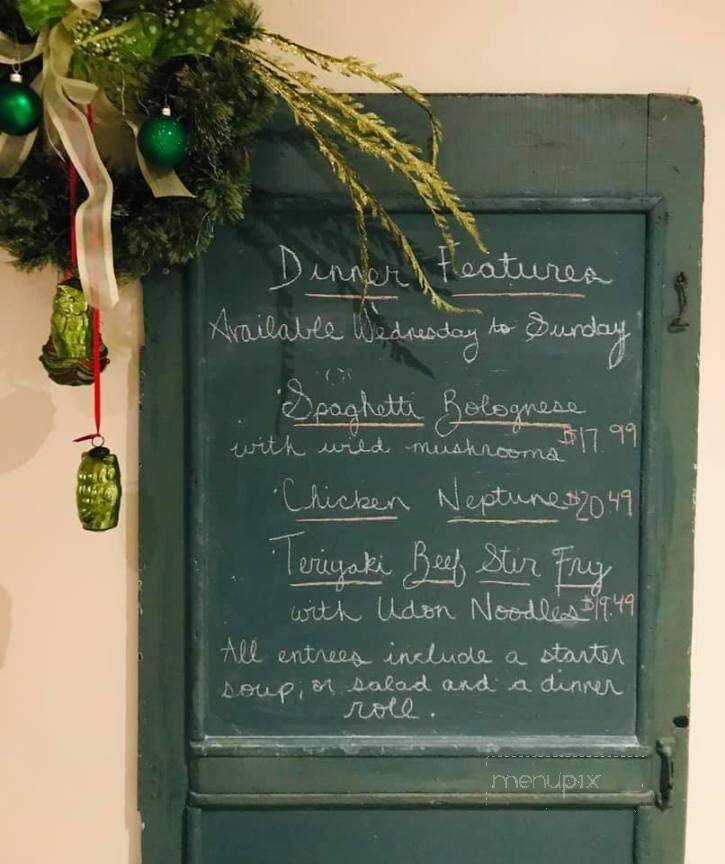 Dinner Features
Available Wednesday to Sunday
Spaghetti Bolognese
with wild mushrooms $17.99
Chicken Neptune $20.49
Teriyaki Beef Stir Fry
with Udon Noodles $19.49
All entrees include a starter
soup, or salad and a dinner
roll.
menupix